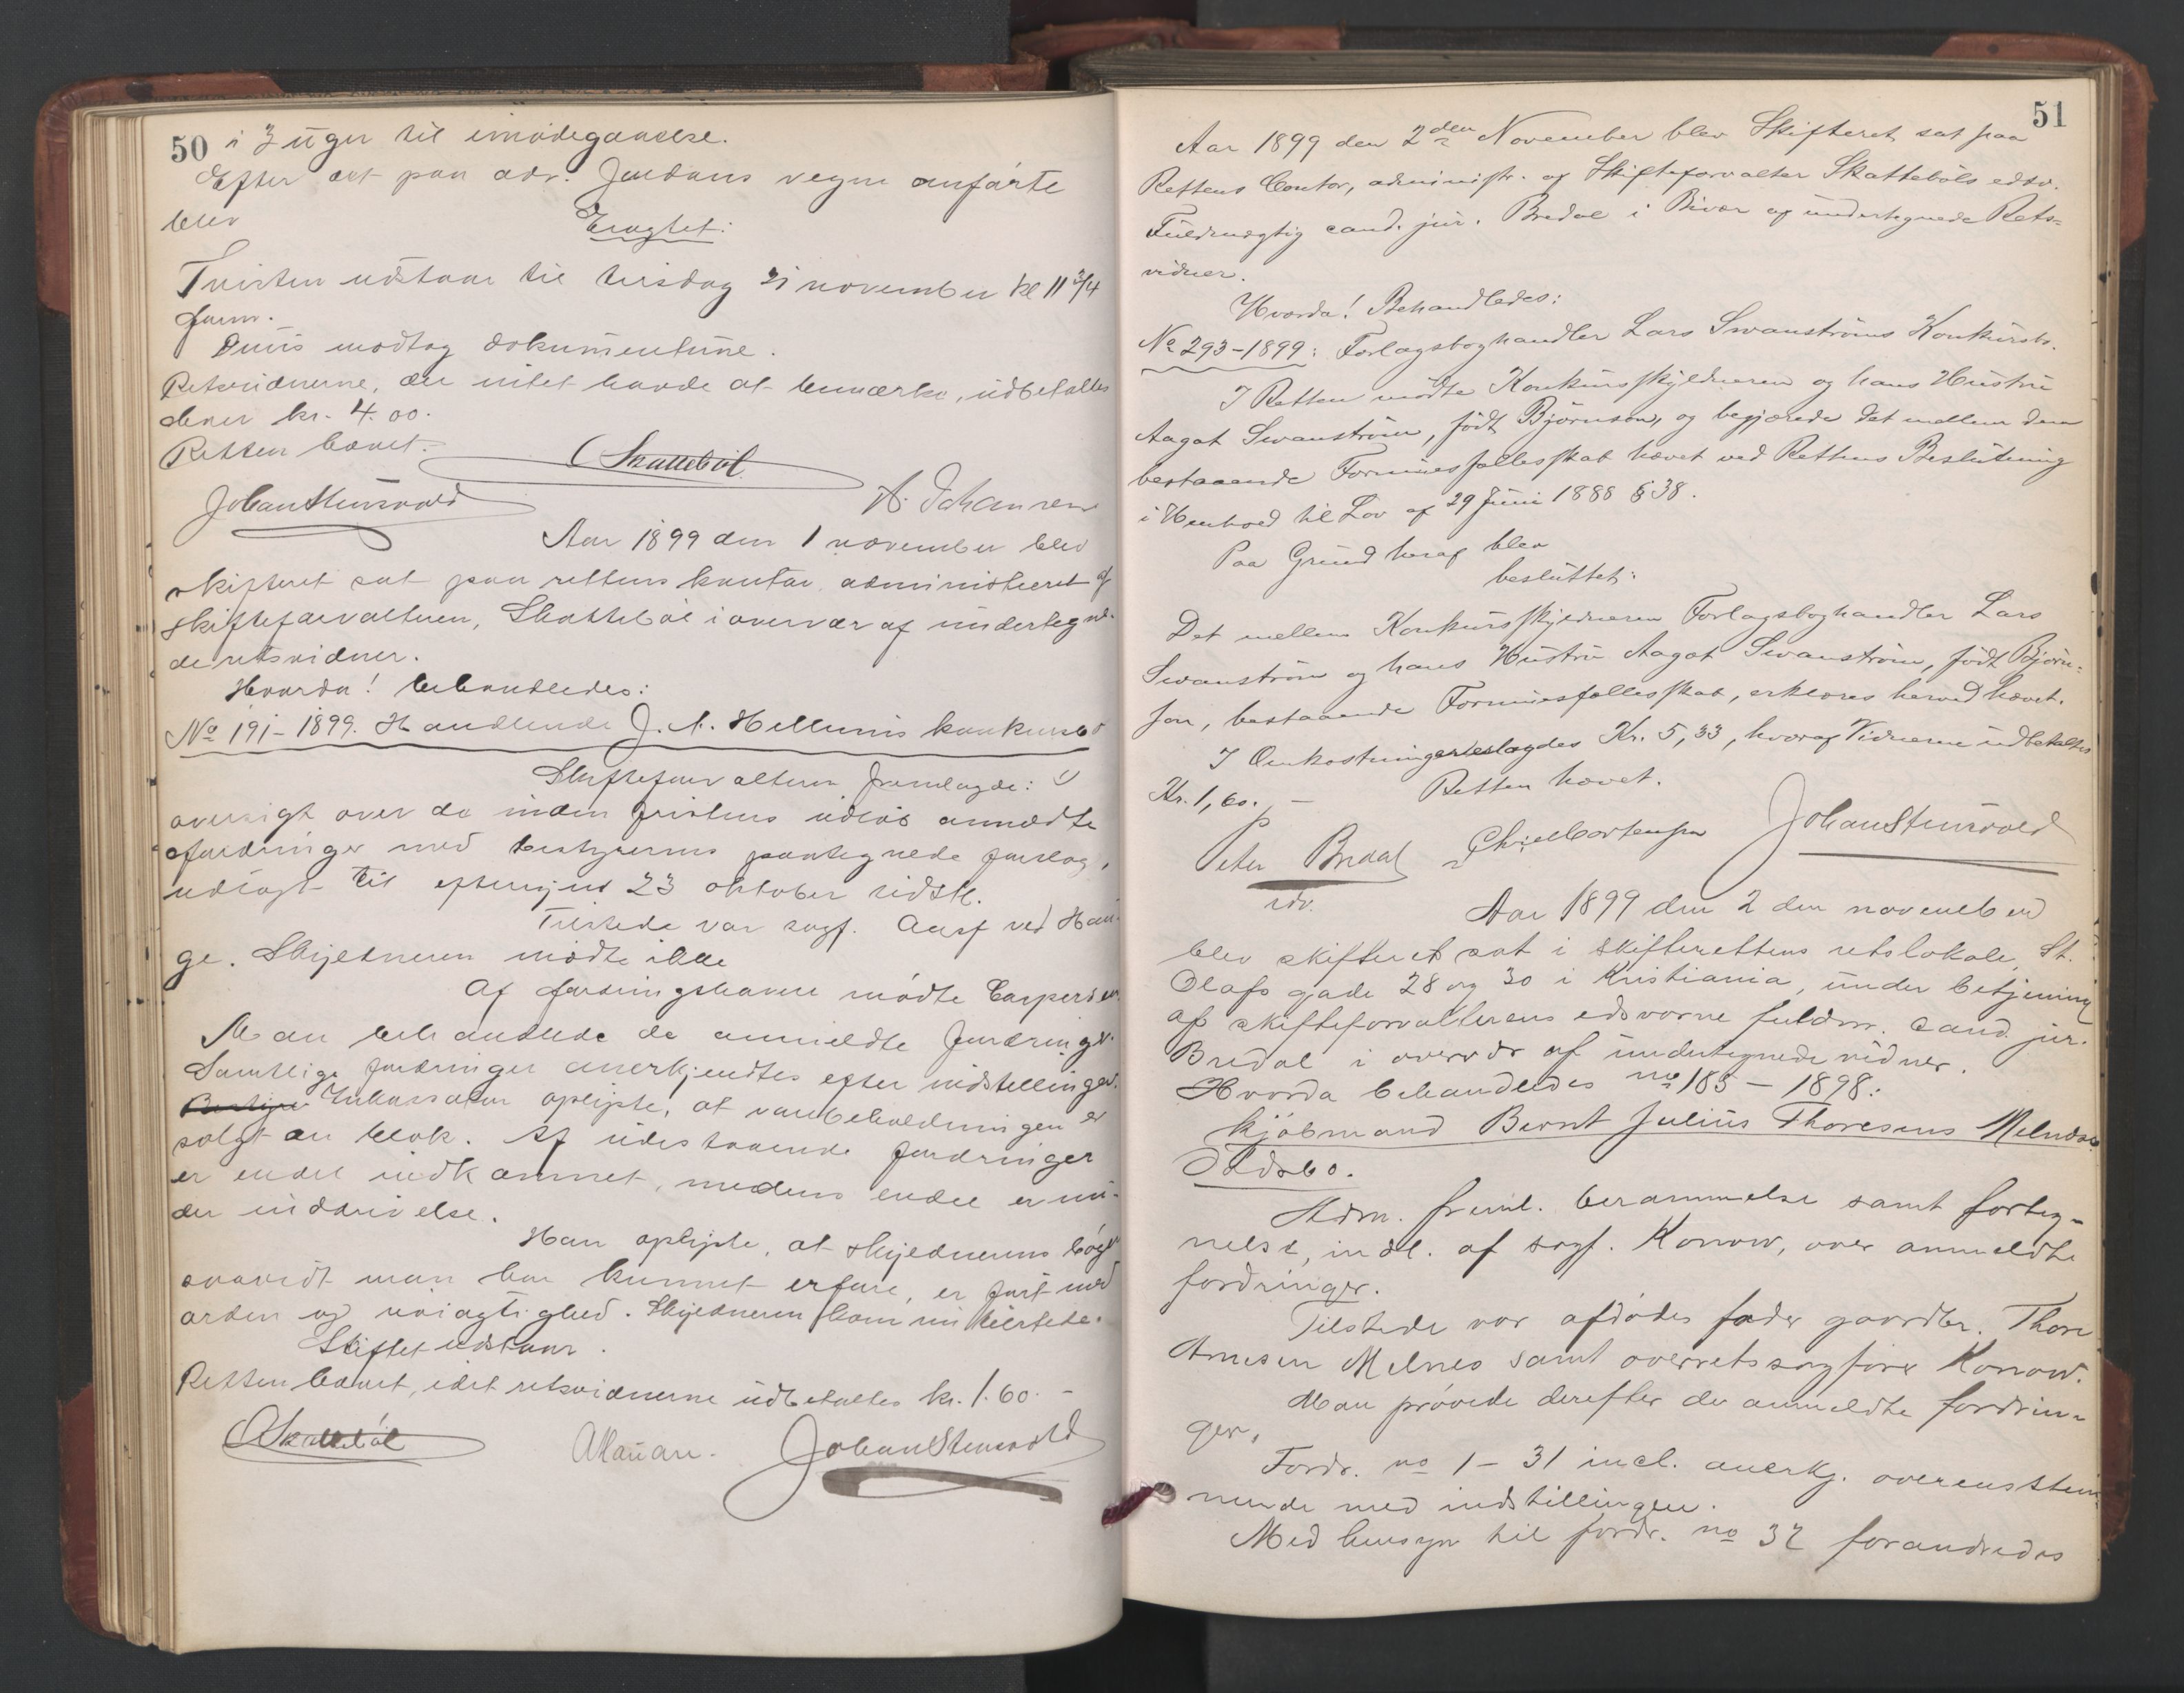 50
i 3 uger til imødegaaelse.
Efter det paa adv. Jordans vegne anførte
blev
Eragtet:
Tvisten udstaar til tirsdag 21 november kl 11 3/4
form.
Duus modtog dokumenterne.
Retsvidnerne, der intet havde at bemærke, udbetaltes
kr. 4.00.
Retten hævet.
Skattebøl
Johan Stensvold
A. Johansen
Aar 1899 den 1 november blev
skifteret sat paa rettens kontor administreret af
skifteforvalteren, Skattebøl i overvær af undertegne-
de retsvidner.
Hvorda! behandledes:
No 191-1899. Handlende J. A. Hellums konkursbo
Skifteforvalteren fremlagde:
oversigt over de inden fristens udløb anmeldte
fordringer med bestyrerens paategnede forslag,
udlagt til eftersyn 23 oktober sidstl.
Tilstede var sagf. Aars ved Hau-
ge. Skyldneren mødte ikke
Af fordringshavere mødte Caspersen.
Man behandlede de anmeldte fordringer.
Samtlige fordringer anerkjendtes efter indstillingen.
Inkassator oplyste, at varebeholdningen er
solgt en blok. Af udestaaende fordringer
er endel indkommet, medens endel er un-
der inddrivelse.
Han oplyste, at skyldnerens bøger
saavidt man har kunnet erfare, er ført med
orden og nøiagtighed. Skyldneren kom nu tilstede.
Skiftet udstaar.
Retten hævet, idet retsvidnerne udbetaltes kr. 1.60.-
Skattebøl
Johan Stensvold
51
Aar 1899 den 2den November blev Skifteret sat paa
Rettens Contor, administr. af Skifteforvalter Skattebøls edsv.
Fuldmægtig cand. jur. Bredal i Bivær af undertegnede Rets-
vidner.
Hvorda! Behandledes:
No 293-1899: Forlagsboghandler Lars Swanströms Konkursbo.
I Retten mødte Konkursskyldneren og hans Hustru
Aagot Swanström, født Björnson, og begjærede det mellem dem
bestaaende Formuesfællesskab hævet ved Rettens Beslutning
i Henhold til Lov af 29 Juni 1888 § 38.
Paa Grund heraf blev
besluttet:
Det mellem Konkursskyldneren Forlagsboghandler Lars
Swanström og hans Hustru Aagot Swanström, født Björn-
son, bestaaende Formuesfællesskab, erklæres herved hævet.
I Omkostninger ilagdes Kr. 5,33, hvoraf Vidnerne udbetaltes
Kr. 1,60. -
Retten hævet.
Peter Bredal
edv.
Johan Stensvold
Aar 1899 den 2 den november
blev skifteret sat i skifterettens retslokale, St.
Olafs gade 28 og 30 i Kristiania, under betjening
af skifteforvalterens edsvorne fuldm. cand. jur.
Bredal i overvær af undertegnede vidner.
Hvorda behandledes no 185 - 1898:
Kjøbmand Bernt Julius Thoresens Melnæs
Dødsbo.
Adm. freml. berammelse samt forteg-
nelse, indl. af sagf. Konow, over anmeldte
fordringer.
Tilstede var afdødes fader gaardbr. Thore
Arnesen Melnes samt overretssagfører Konow.
Man prøvede derefter de anmeldte fordrin-
ger,
Fordr. no 1 - 31 incl. anerkj. overensstem-
mende med indstillingen.
Med hensyn til fordr. no 32 forandredes